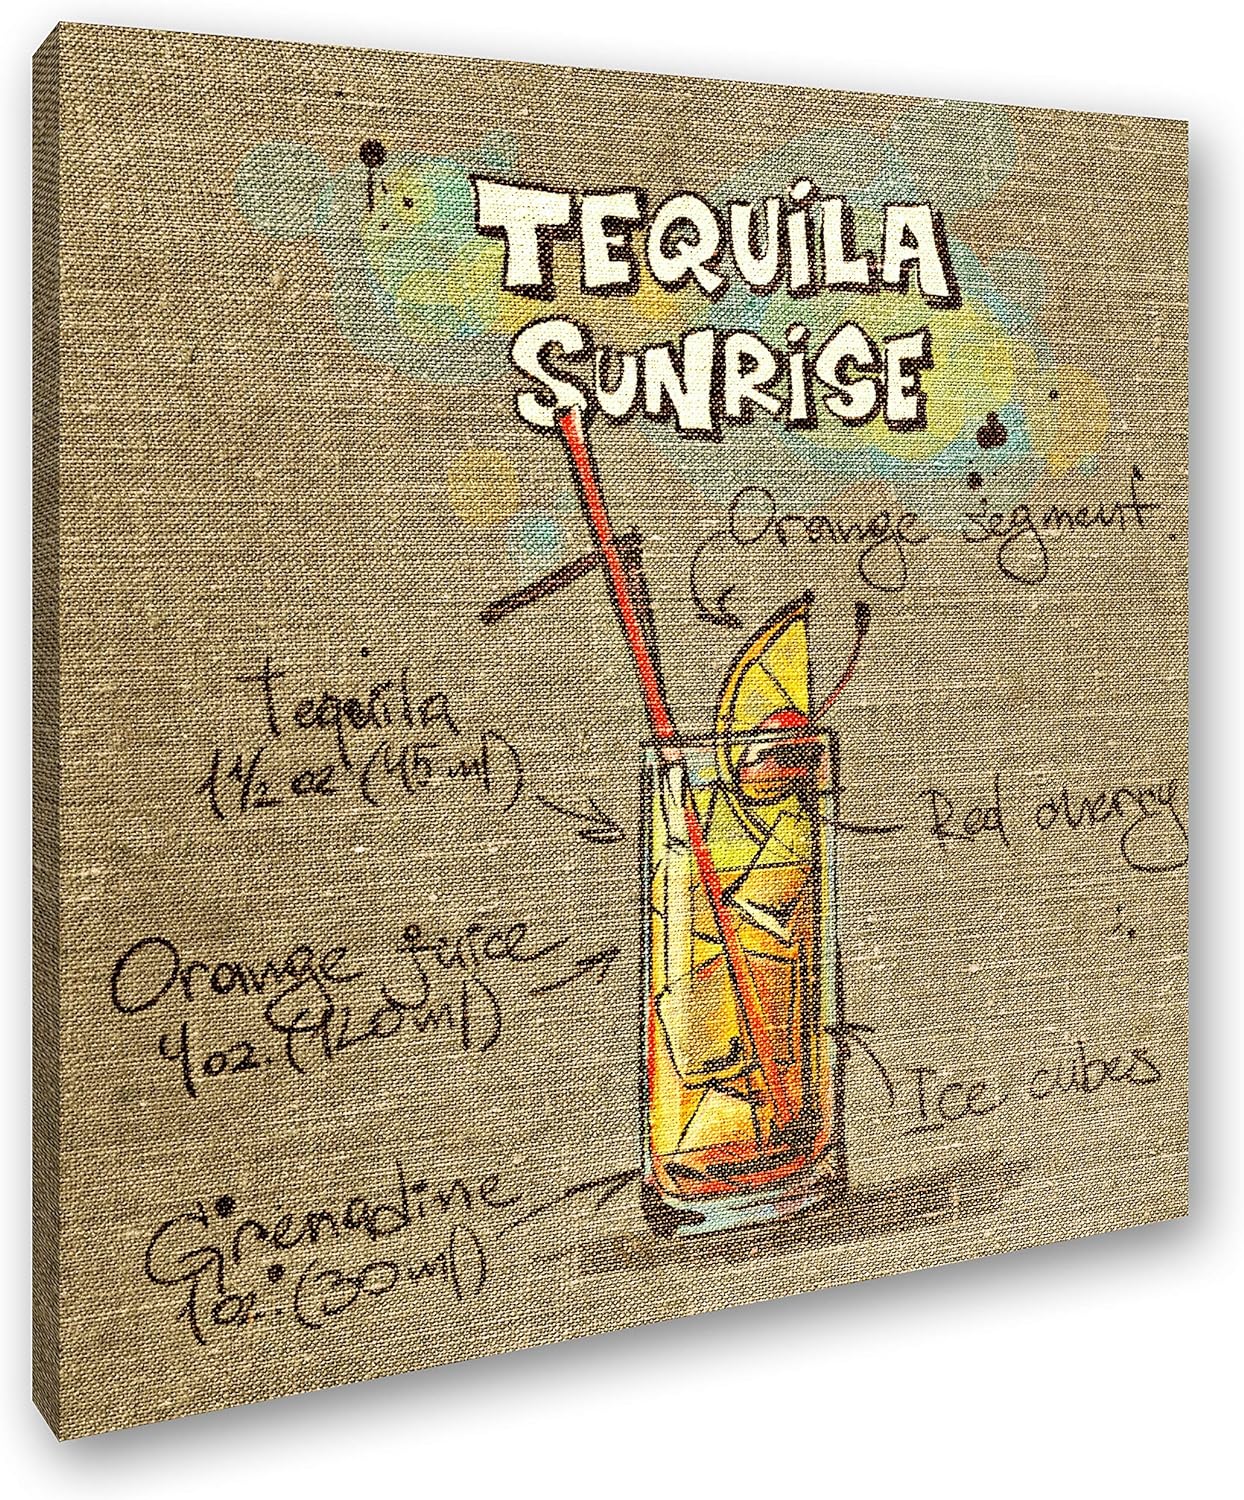 TEQUILA
SUNRISE
Orange segment
Tequila
1 1/2 oz (45 ml)
Red cherry
Orange juice
4 oz. (120 ml)
Ice cubes
Grenadine
1 oz. (30 ml)